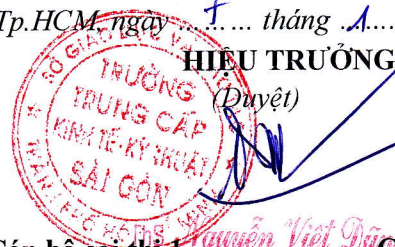 Tp.HCM, ngày ... tháng .1...
HIỆU TRƯỞNG
(Duyệt)
SỞ GIÁO DỤC VÀ
TRƯỜNG
TRUNG CẤP
KINH TẾ-KỸ THUẬT
SÀI GÒN
ThS. Nguyễn Việt